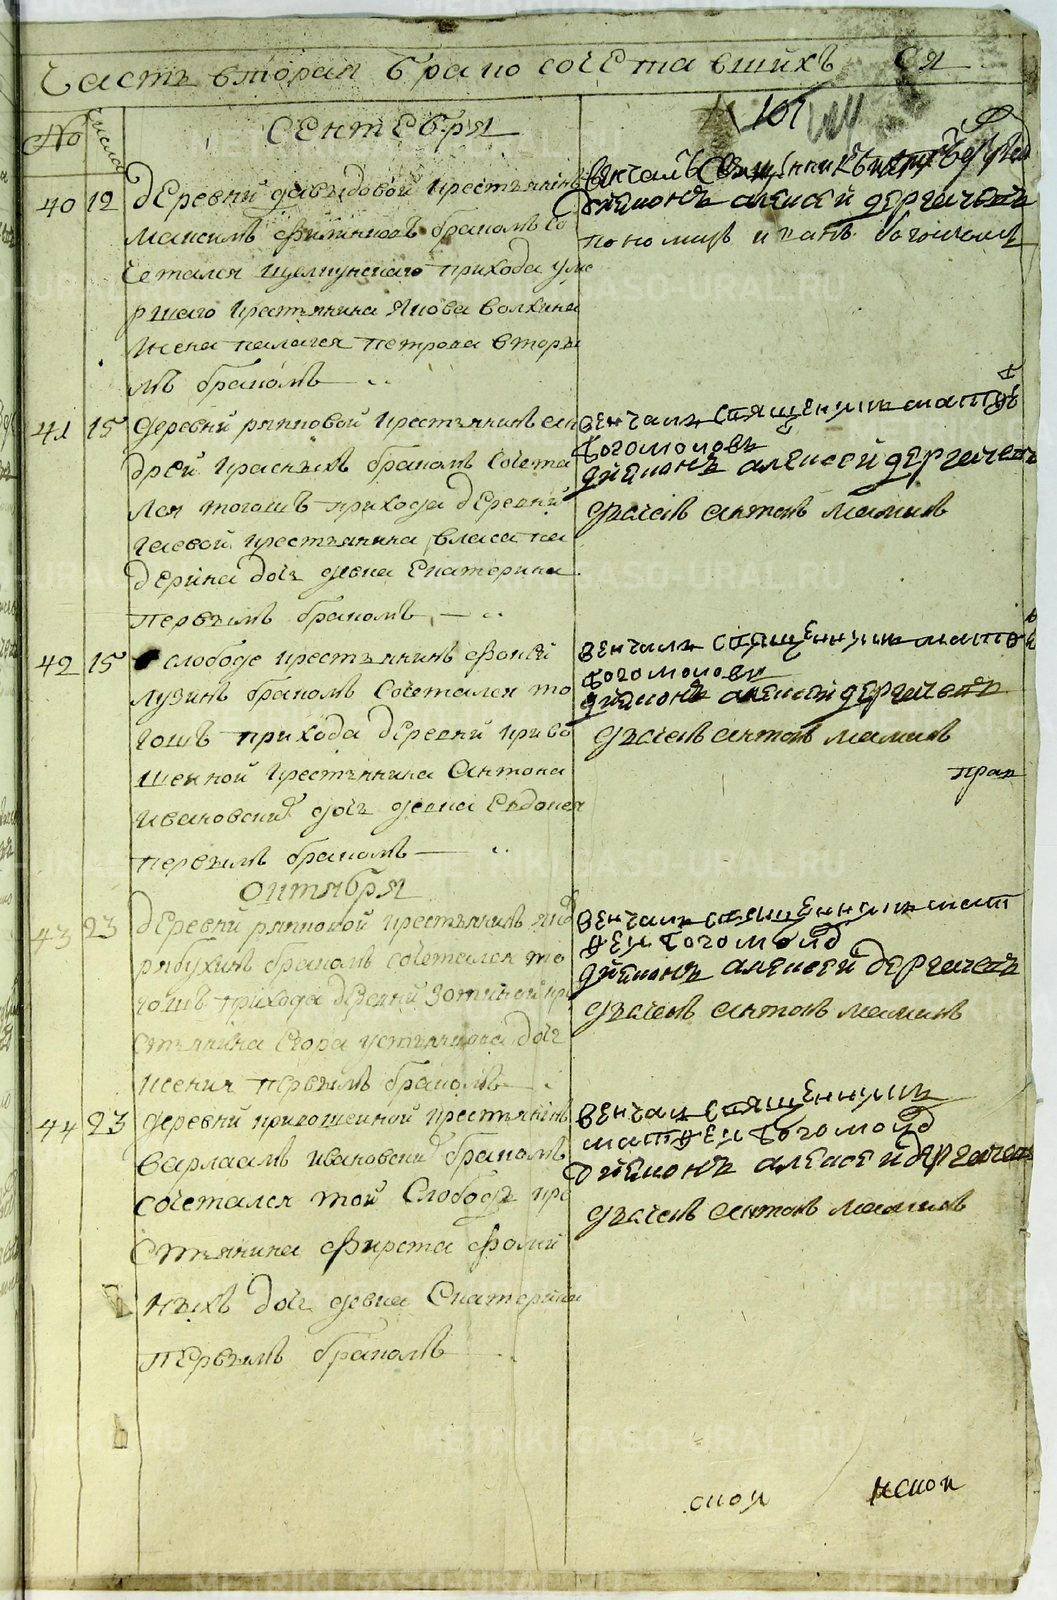 Часть вторая брако сочетавшихъ ся
No числа Сентебря
101
40 12 деревни давыдовой крестьянинъ
Максимъ браномъ со
четался прихода уме
ршаго крестьянина Якова волкина
жена палагея петрова вторы
мъ бракомъ
Венчалъ Священникъ
Диаконъ алексей дергачевъ
пономарь иванъ
41 15 деревни ряпковой крестьянинъ ан
дрей красныхъ бракомъ сочета
лся тогожъ прихода деревни
гаевой крестьянина власа па
дерина дочь девка Екатерина
первымъ бракомъ
венчалъ священникъ матфе
богомоловъ
диаконъ алексей дергачевъ
дьячекъ антонъ маминъ
42 15 слободе крестьянинъ фокей
лузинъ бракомъ сочетался то
гожъ прихода деревни криво
шенной крестьянина Антона
ивановских дочь девка Евдокея
первымъ бракомъ
венчалъ священникъ матфе
богомоловъ
диаконъ алексей дергачевъ
дьячекъ антонъ маминъ
прак
октября
43 23 деревни ряпковой крестьянинъ
рябухинъ бракомъ сочетался то
гожъ прихода деревни зотиной кре
стьянина Егора устьянцова дочь
ксения первымъ бракомъ
венчалъ священникъ мат
фей богомолов
диаконъ алексей дергачевъ
дьячекъ антонъ маминъ
44 23 деревни кривошенной крестьянинъ
варлаамъ ивановских бракомъ
сочетался той слободы кре
стьянина фирста фоми
ныхъ дочь девка Екатерина
первымъ бракомъ
венчал священникъ
матфей богомолов
диаконъ алексей дергачевъ
дьячекъ антонъ маминъ